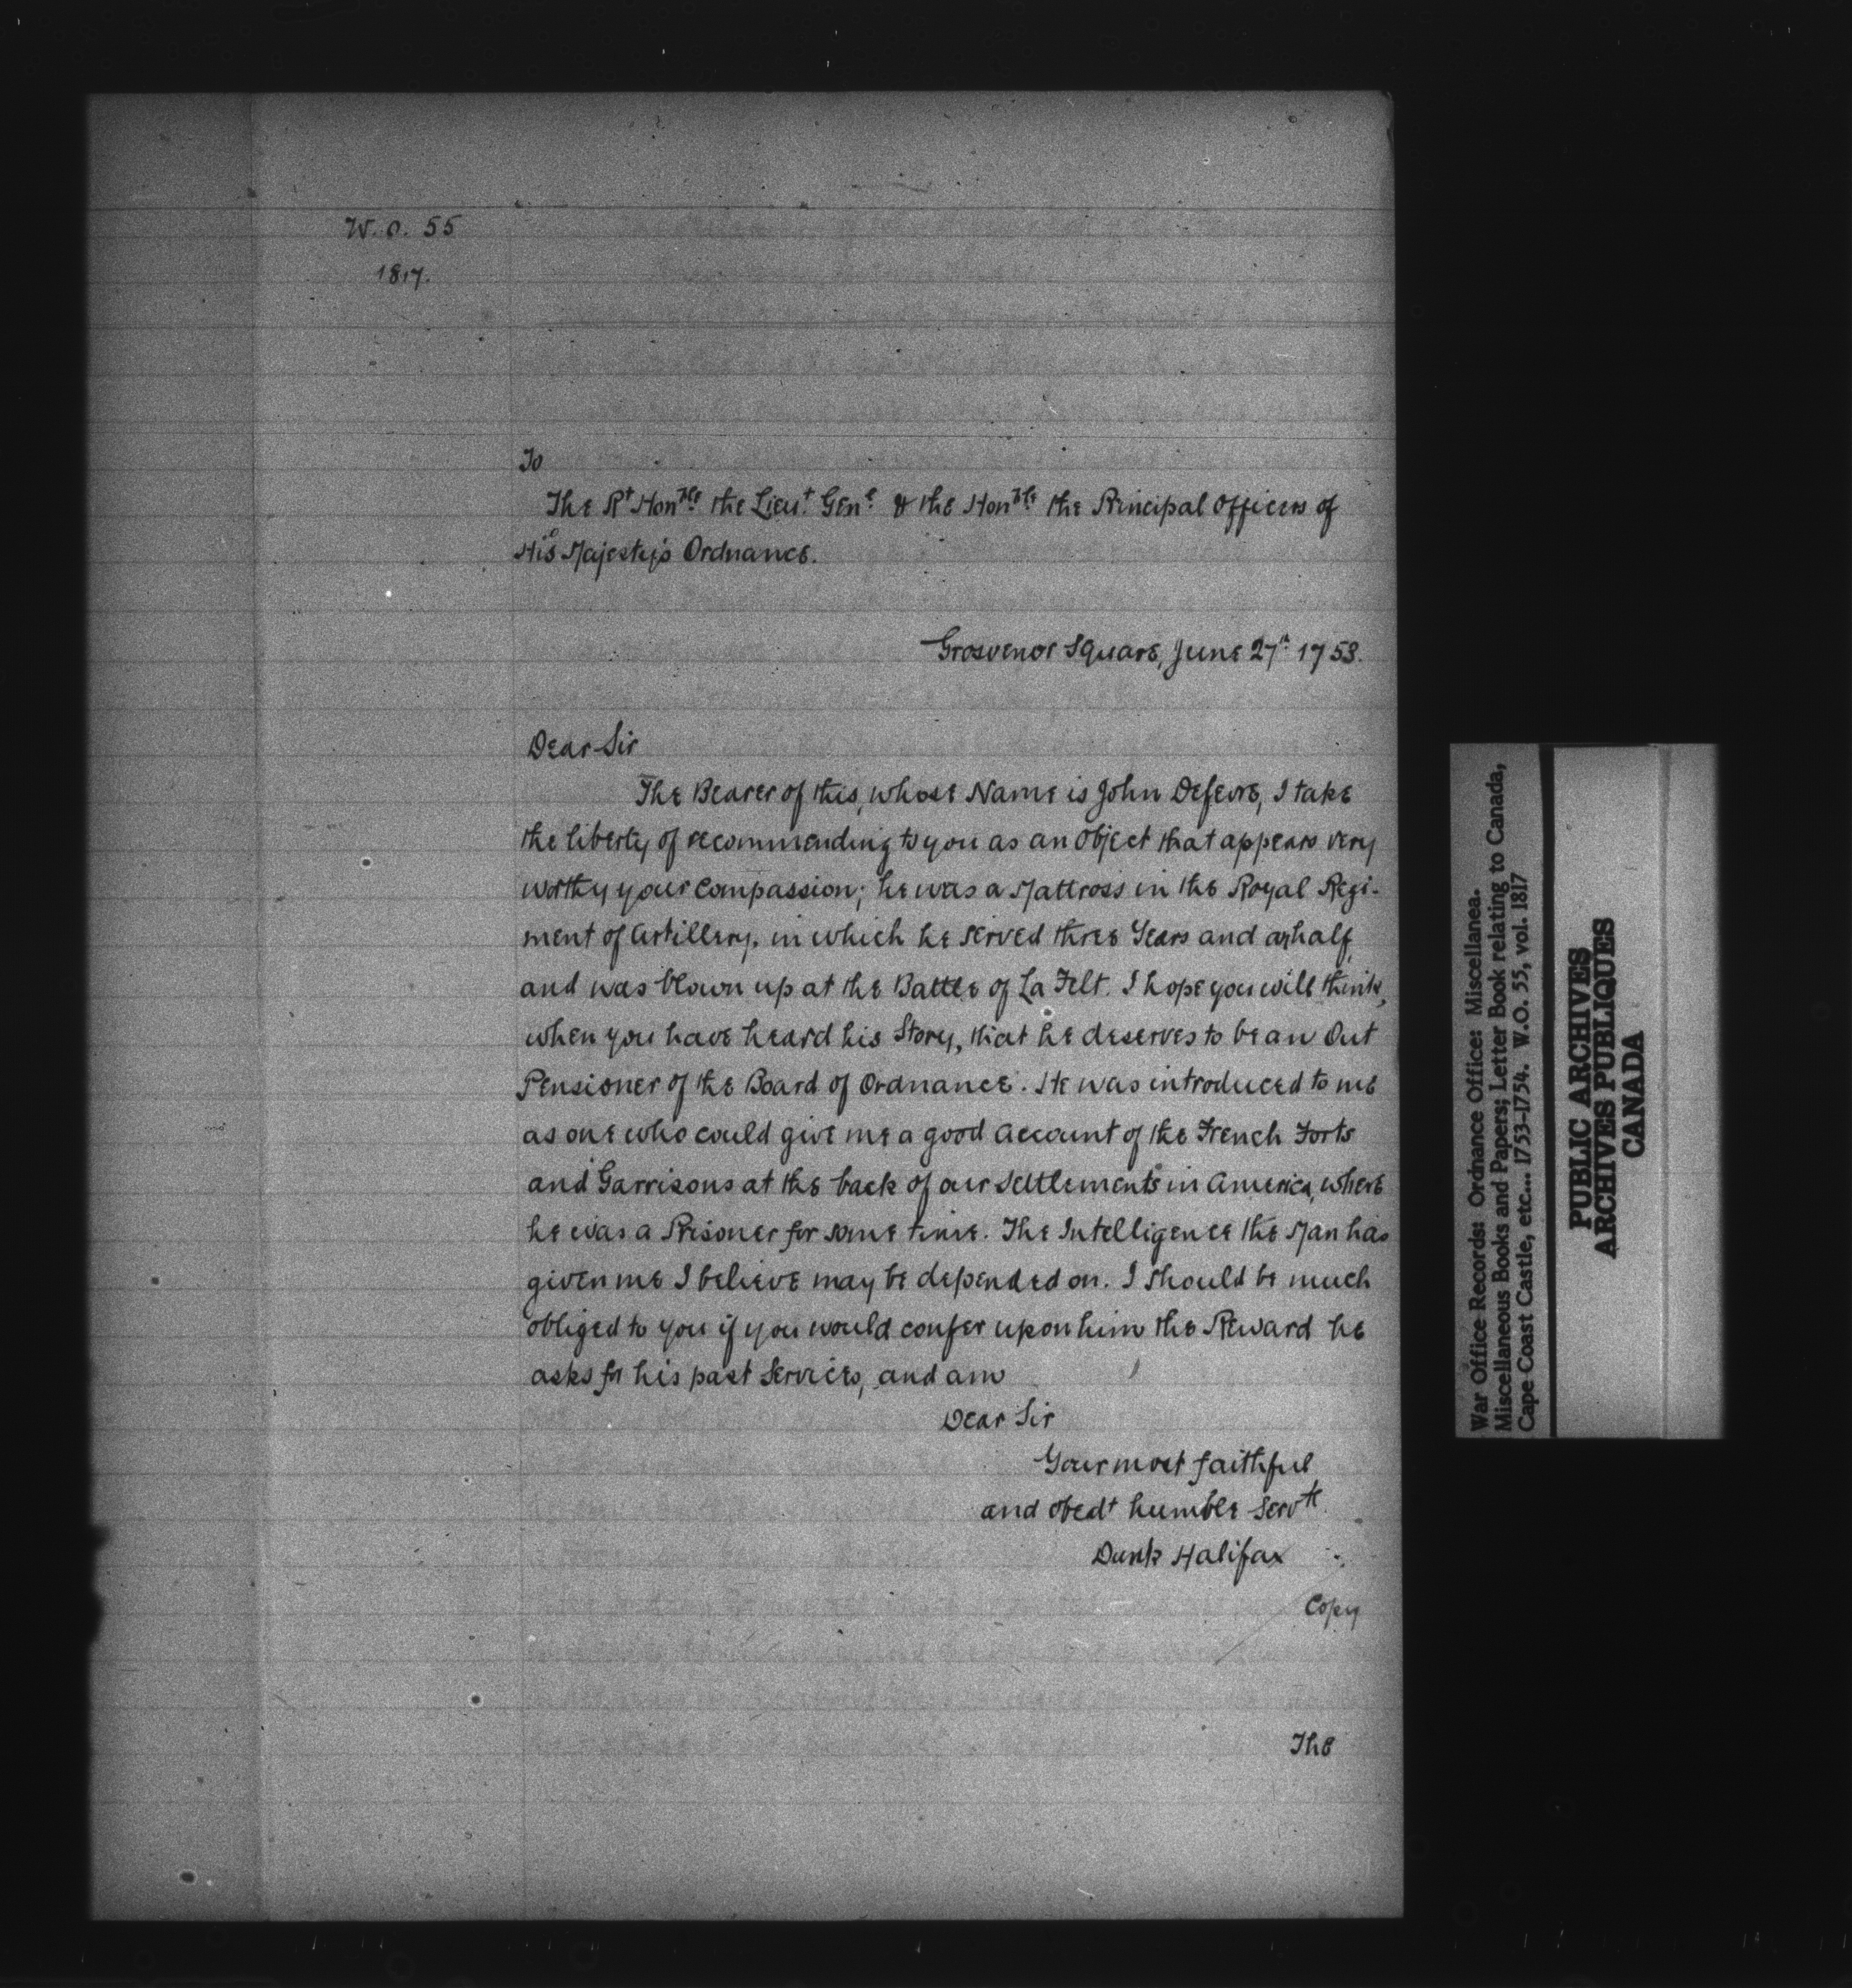 W. O. 55
1817.
To
The Rt Honble the Lieut Genl & the Honble the Principal Officers of
His Majesty's Ordnance.
Grosvenor Square, June 27th 1753.
Dear Sir
The Bearer of this, whose Name is John Defeve, I take
the liberty of recommending to you as an Object that appears very
worthy your Compassion; he was a Mattross in the Royal Regi-
ment of Artillery, in which he served three Years and a half,
and was blown up at the Battle of La Felt. I hope you will think,
when you have heard his Story, that he deserves to be an Out
Pensioner of the Board of Ordnance. He was introduced to me
as one who could give me a good Account of the French Forts
and Garrisons at the back of our Settlements in America, where
he was a Prisoner for some time. The Intelligence the Man has
given me I believe may be depended on. I should be much
obliged to you if you would confer upon him the Reward he
asks for his past Services, and am
Dear Sir
Your most faithful
and obedt humble Servt
Dunk Halifax
Copy
The
War Office Records: Ordnance Office: Miscellanea.
Miscellaneous Books and Papers; Letter Book relating to Canada,
Cape Coast Castle, etc... 1753-1754. W.O. 55, vol. 1817
PUBLIC ARCHIVES
ARCHIVES PUBLIQUES
CANADA